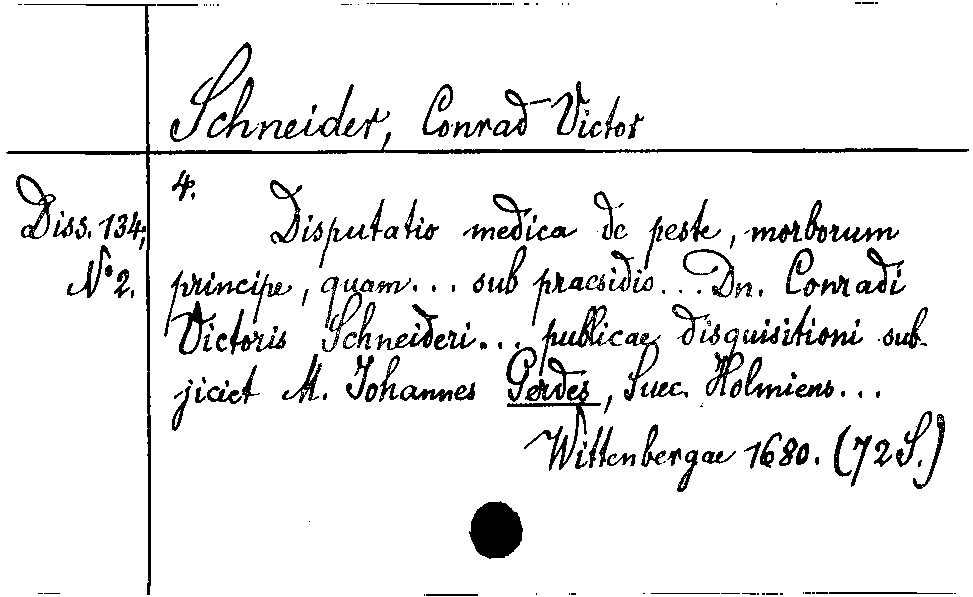 Schneider, Conrad Victor
Diss. 134,
N° 2.
4.
Disputatio medica de peste, morborum
principe, quam... sub praesidio... Dn. Conradi
Victoris Schneideri... publicae disquisitioni sub-
jiciet M. Johannes Gerdes, Suec. Holmiens...
Wittenbergae 1680. (72 S.)